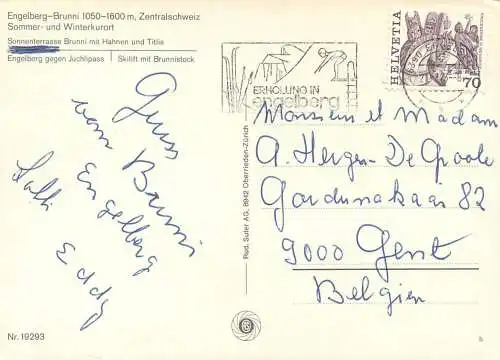 Engelberg-Brunni 1050-1600 m, Zentralschweiz
Sommer- und Winterkurort
Sonnenterrasse Brunni mit Hahnen und Titlis
Engelberg gegen Juchlipass | Skilift mit Brunnistock
ERHOLUNG IN
engelberg
HELVETIA
70
Gruss
vom Brunni
Engelberg
Eddy
Monsieur et Madam
A. Hergen-De Poole
Gardunakaai 82
9000 Gent
Belgien
Rud. Suter AG, 8942 Oberrieden-Zürich
Nr. 19293